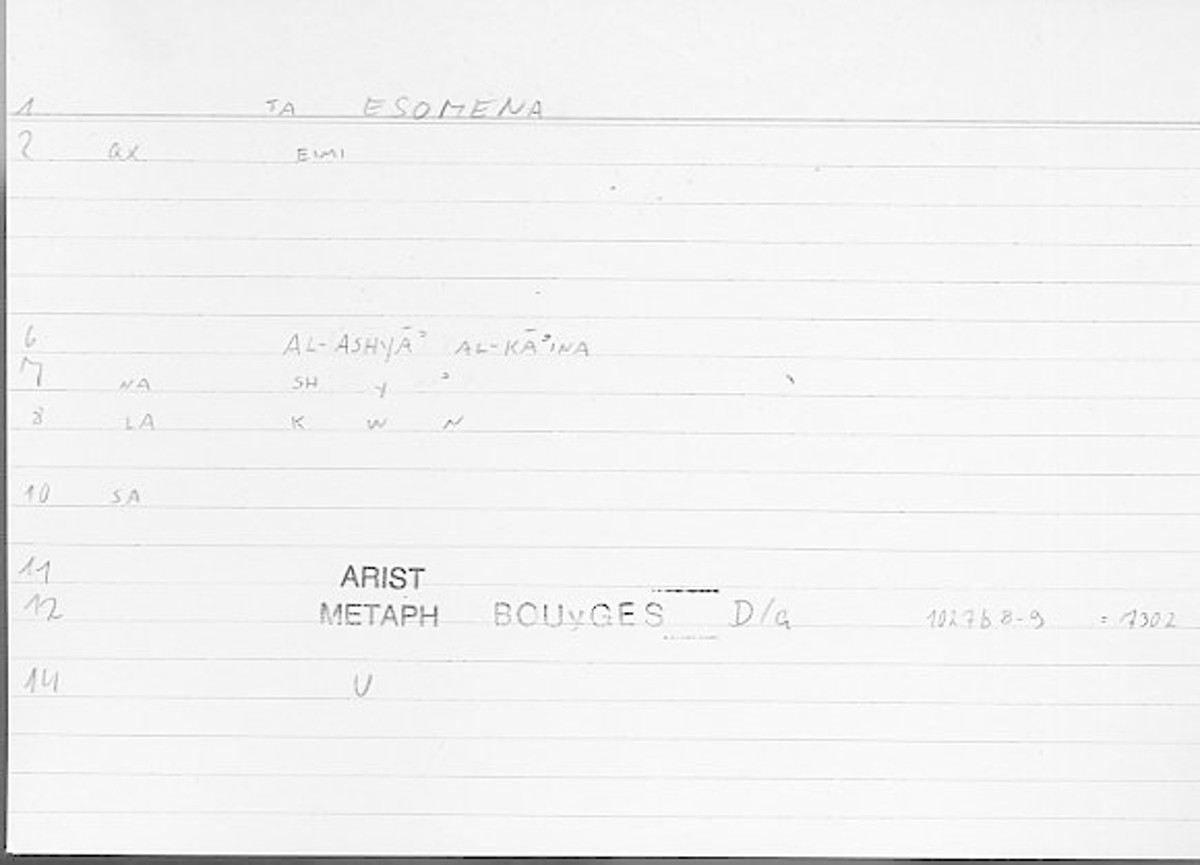 1 TA ESOMENA
2 ax EIMI
6 AL-ASHYĀʾ AL-KĀʾINA
7 NA SH Y ʾ
8 LA K W N
10 SA
11 ARIST
12 METAPH BOUYGES D/a 1027b 8-9 = 7302
14 U